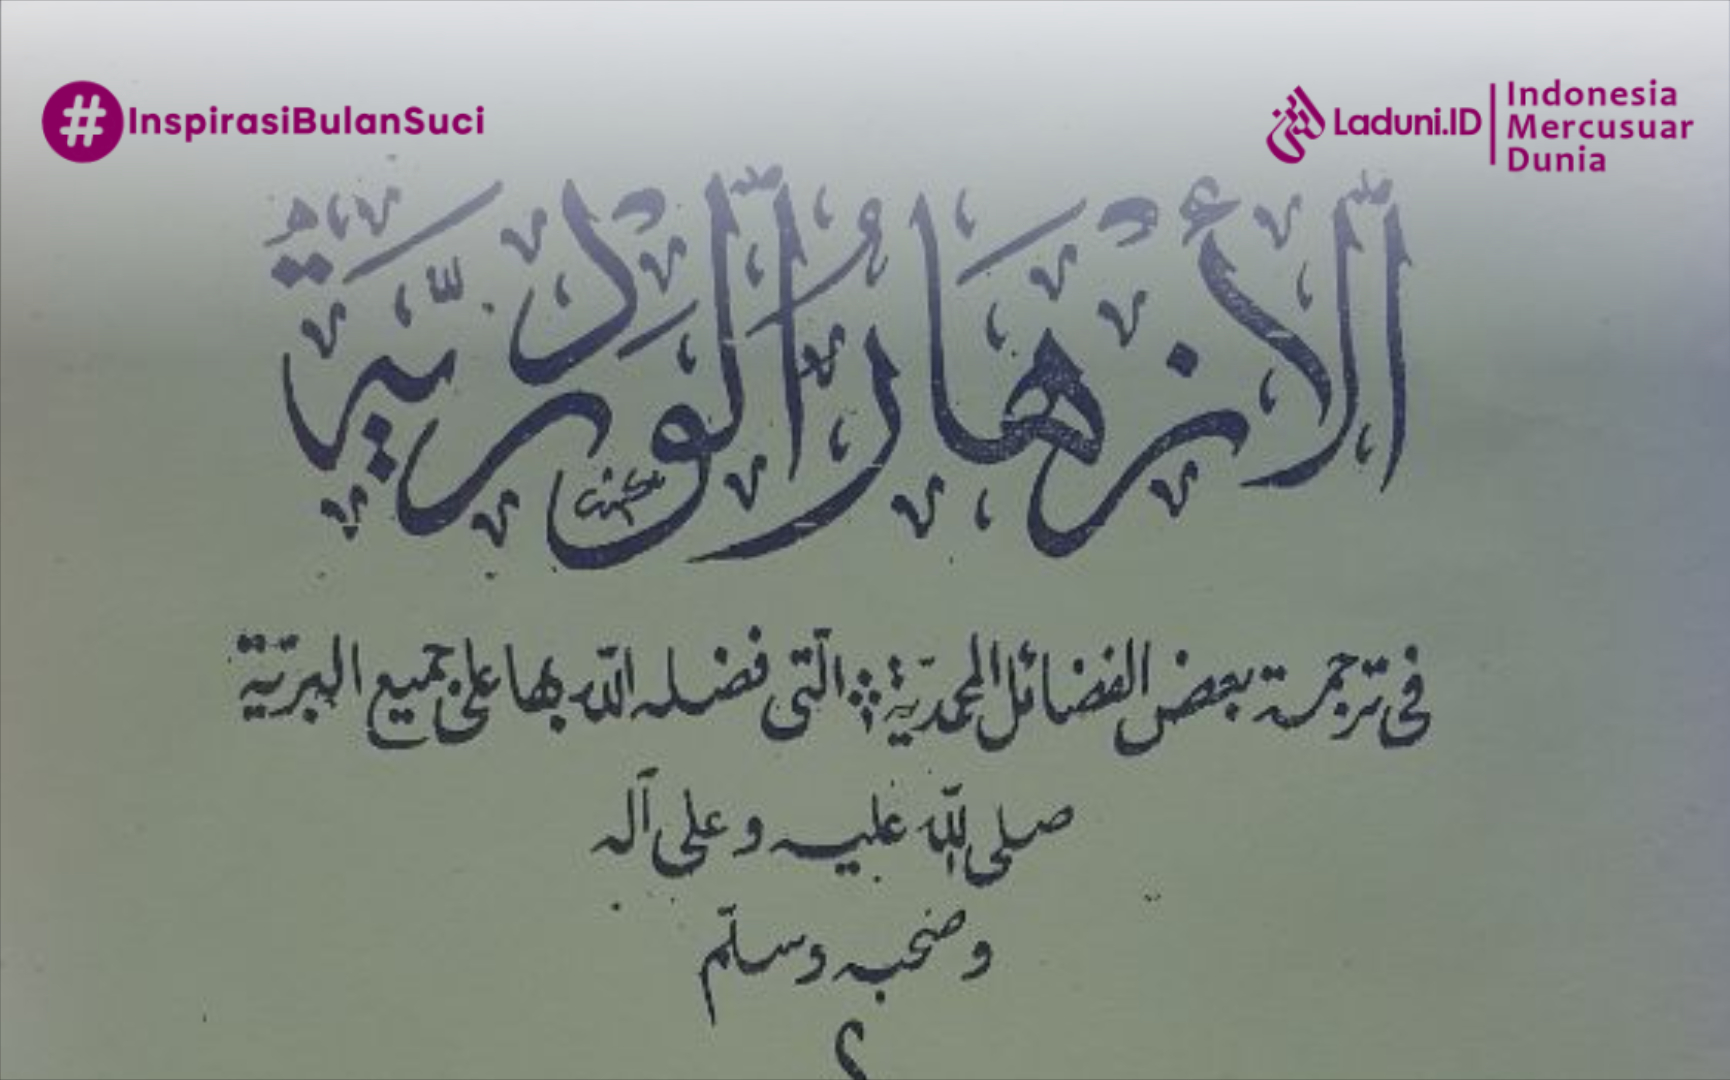 #InspirasiBulanSuci
Laduni.ID
Indonesia
Mercusuar
Dunia
الْأَزْهَارُ الْوَرْدِيَّةُ
فى ترجمة بعض الفضائل المحمديّة ؞ الّتى فضله اللّه بها على جميع البريّة
صلى اللّه عليه وعلى آله
وصحبه وسلّم